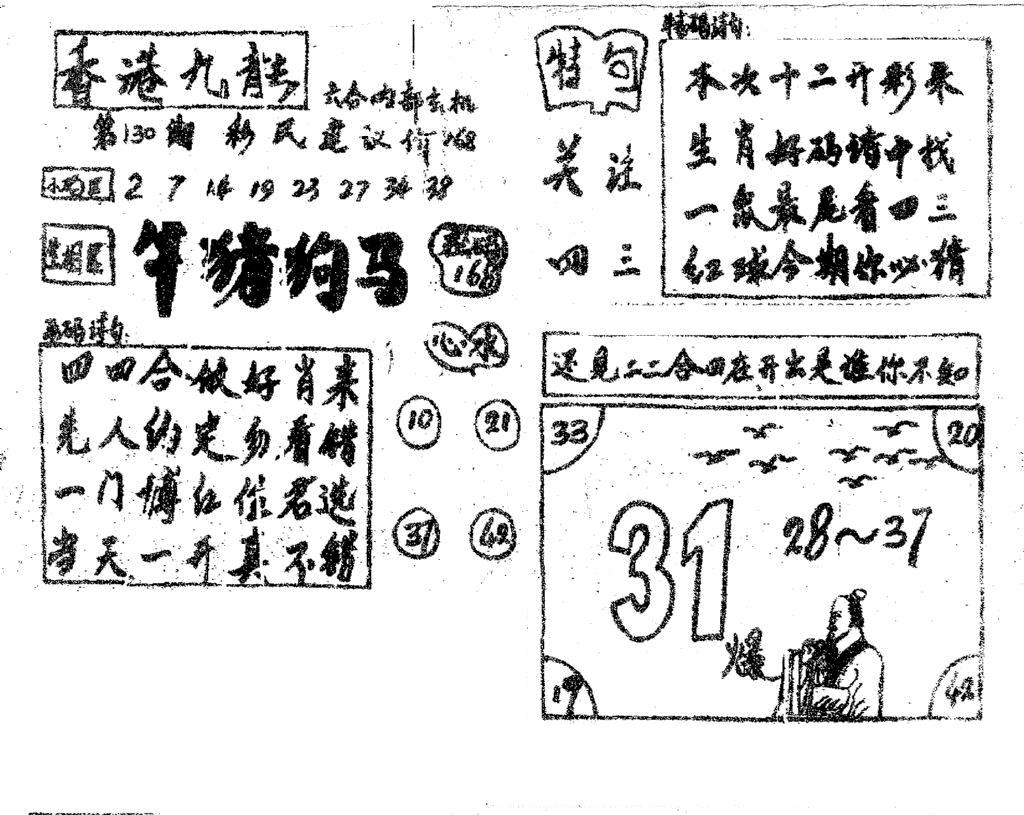 香港九龍
六合内部玄机
第130期 彩民建议价168
2 7 14 19 23 27 34 38
生肖区
牛猪狗马
168
心水
四四合做好肖来
先人约定勿看错
一门博红你君选
当天一开真不错
10 21
37 42
特句
关注
四三
特码诗句:
本次十二开彩来
生肖好码诗中找
一众最尾看四三
红球今期你必猜
还见二二合四在开出是谁你不知
33
20
31
28~37
爆
19
42